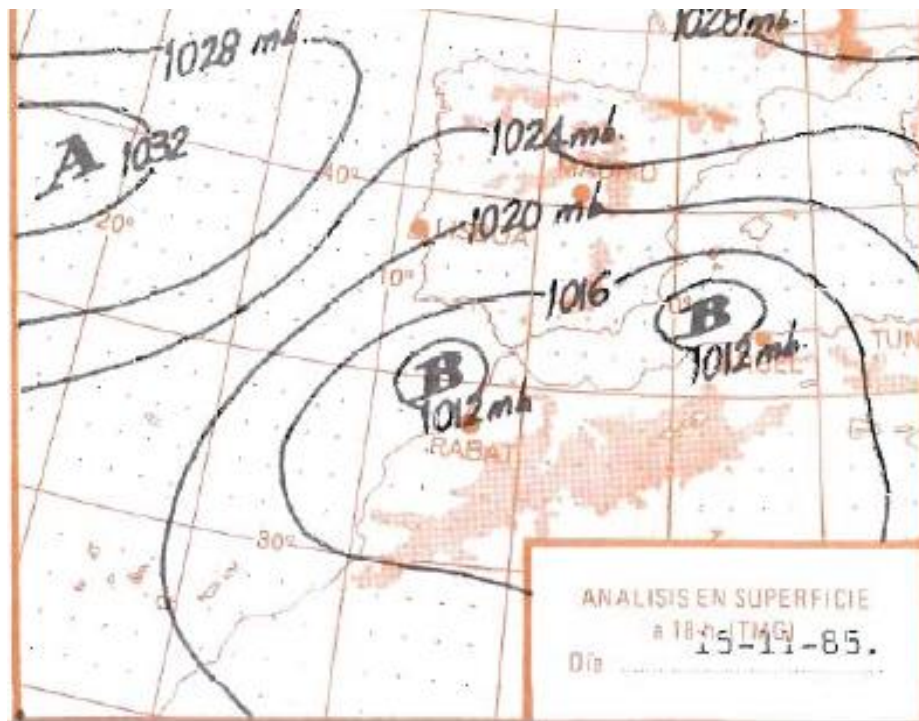 1028 mb.
1028 mb.
A 1032
1024 mb.
MADRID
40°
20°
1020 mb
LISBOA
10°
1016
0°
B
1012 mb.
ARGEL
TUN
B
1012 mb
RABAT
30°
ANALISIS EN SUPERFICIE
a 18 h (TMG)
Día 15-11-85.